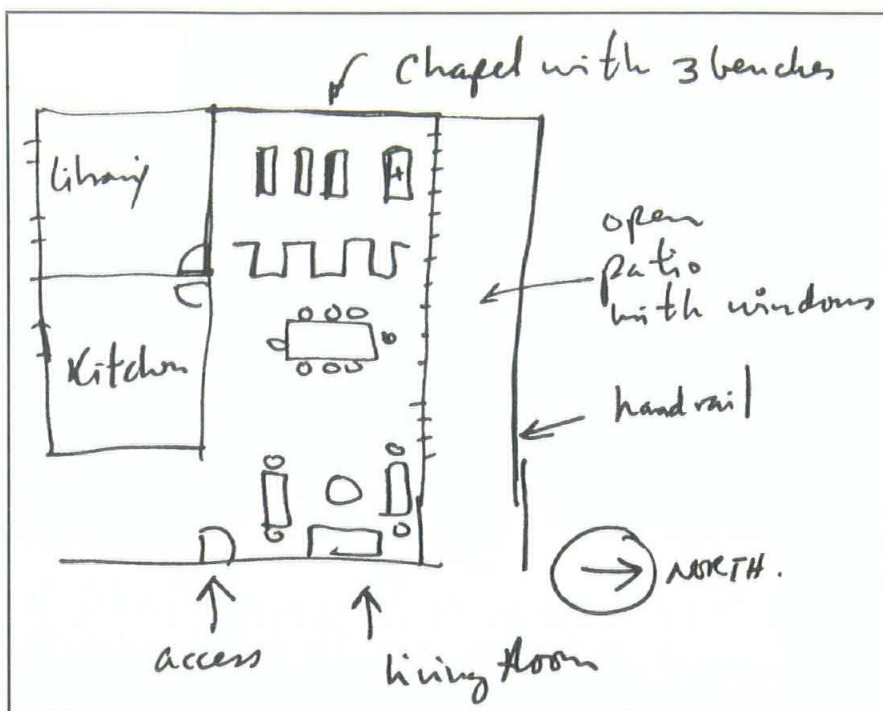 Chapel with 3 benches
Library
open
patio
with windows
Kitchen
handrail
NORTH.
access
living Room